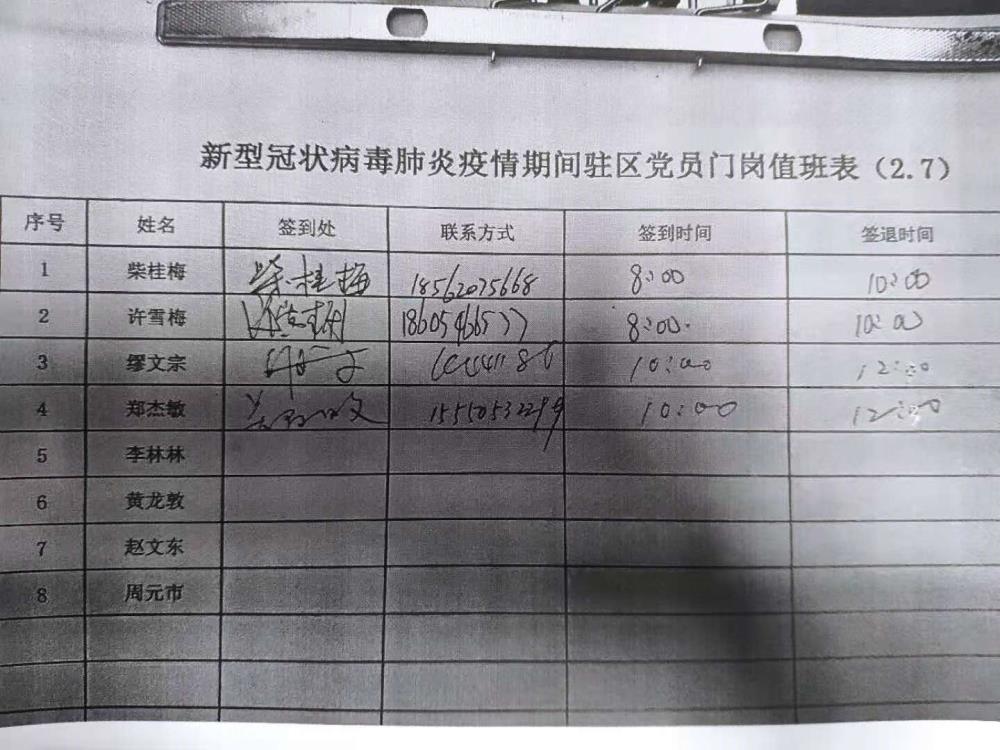 新型冠状病毒肺炎疫情期间驻区党员门岗值班表（2.7）
序号 姓名 签到处 联系方式 签到时间 签退时间
1 柴桂梅 柴桂梅 18562075668 8:00 10:00
2 许雪梅 8:00 10:00
3 缪文宗 10:00 12:00
4 郑杰敏 15550532299 10:00 12:00
5 李林林
6 黄龙敦
7 赵文东
8 周元市